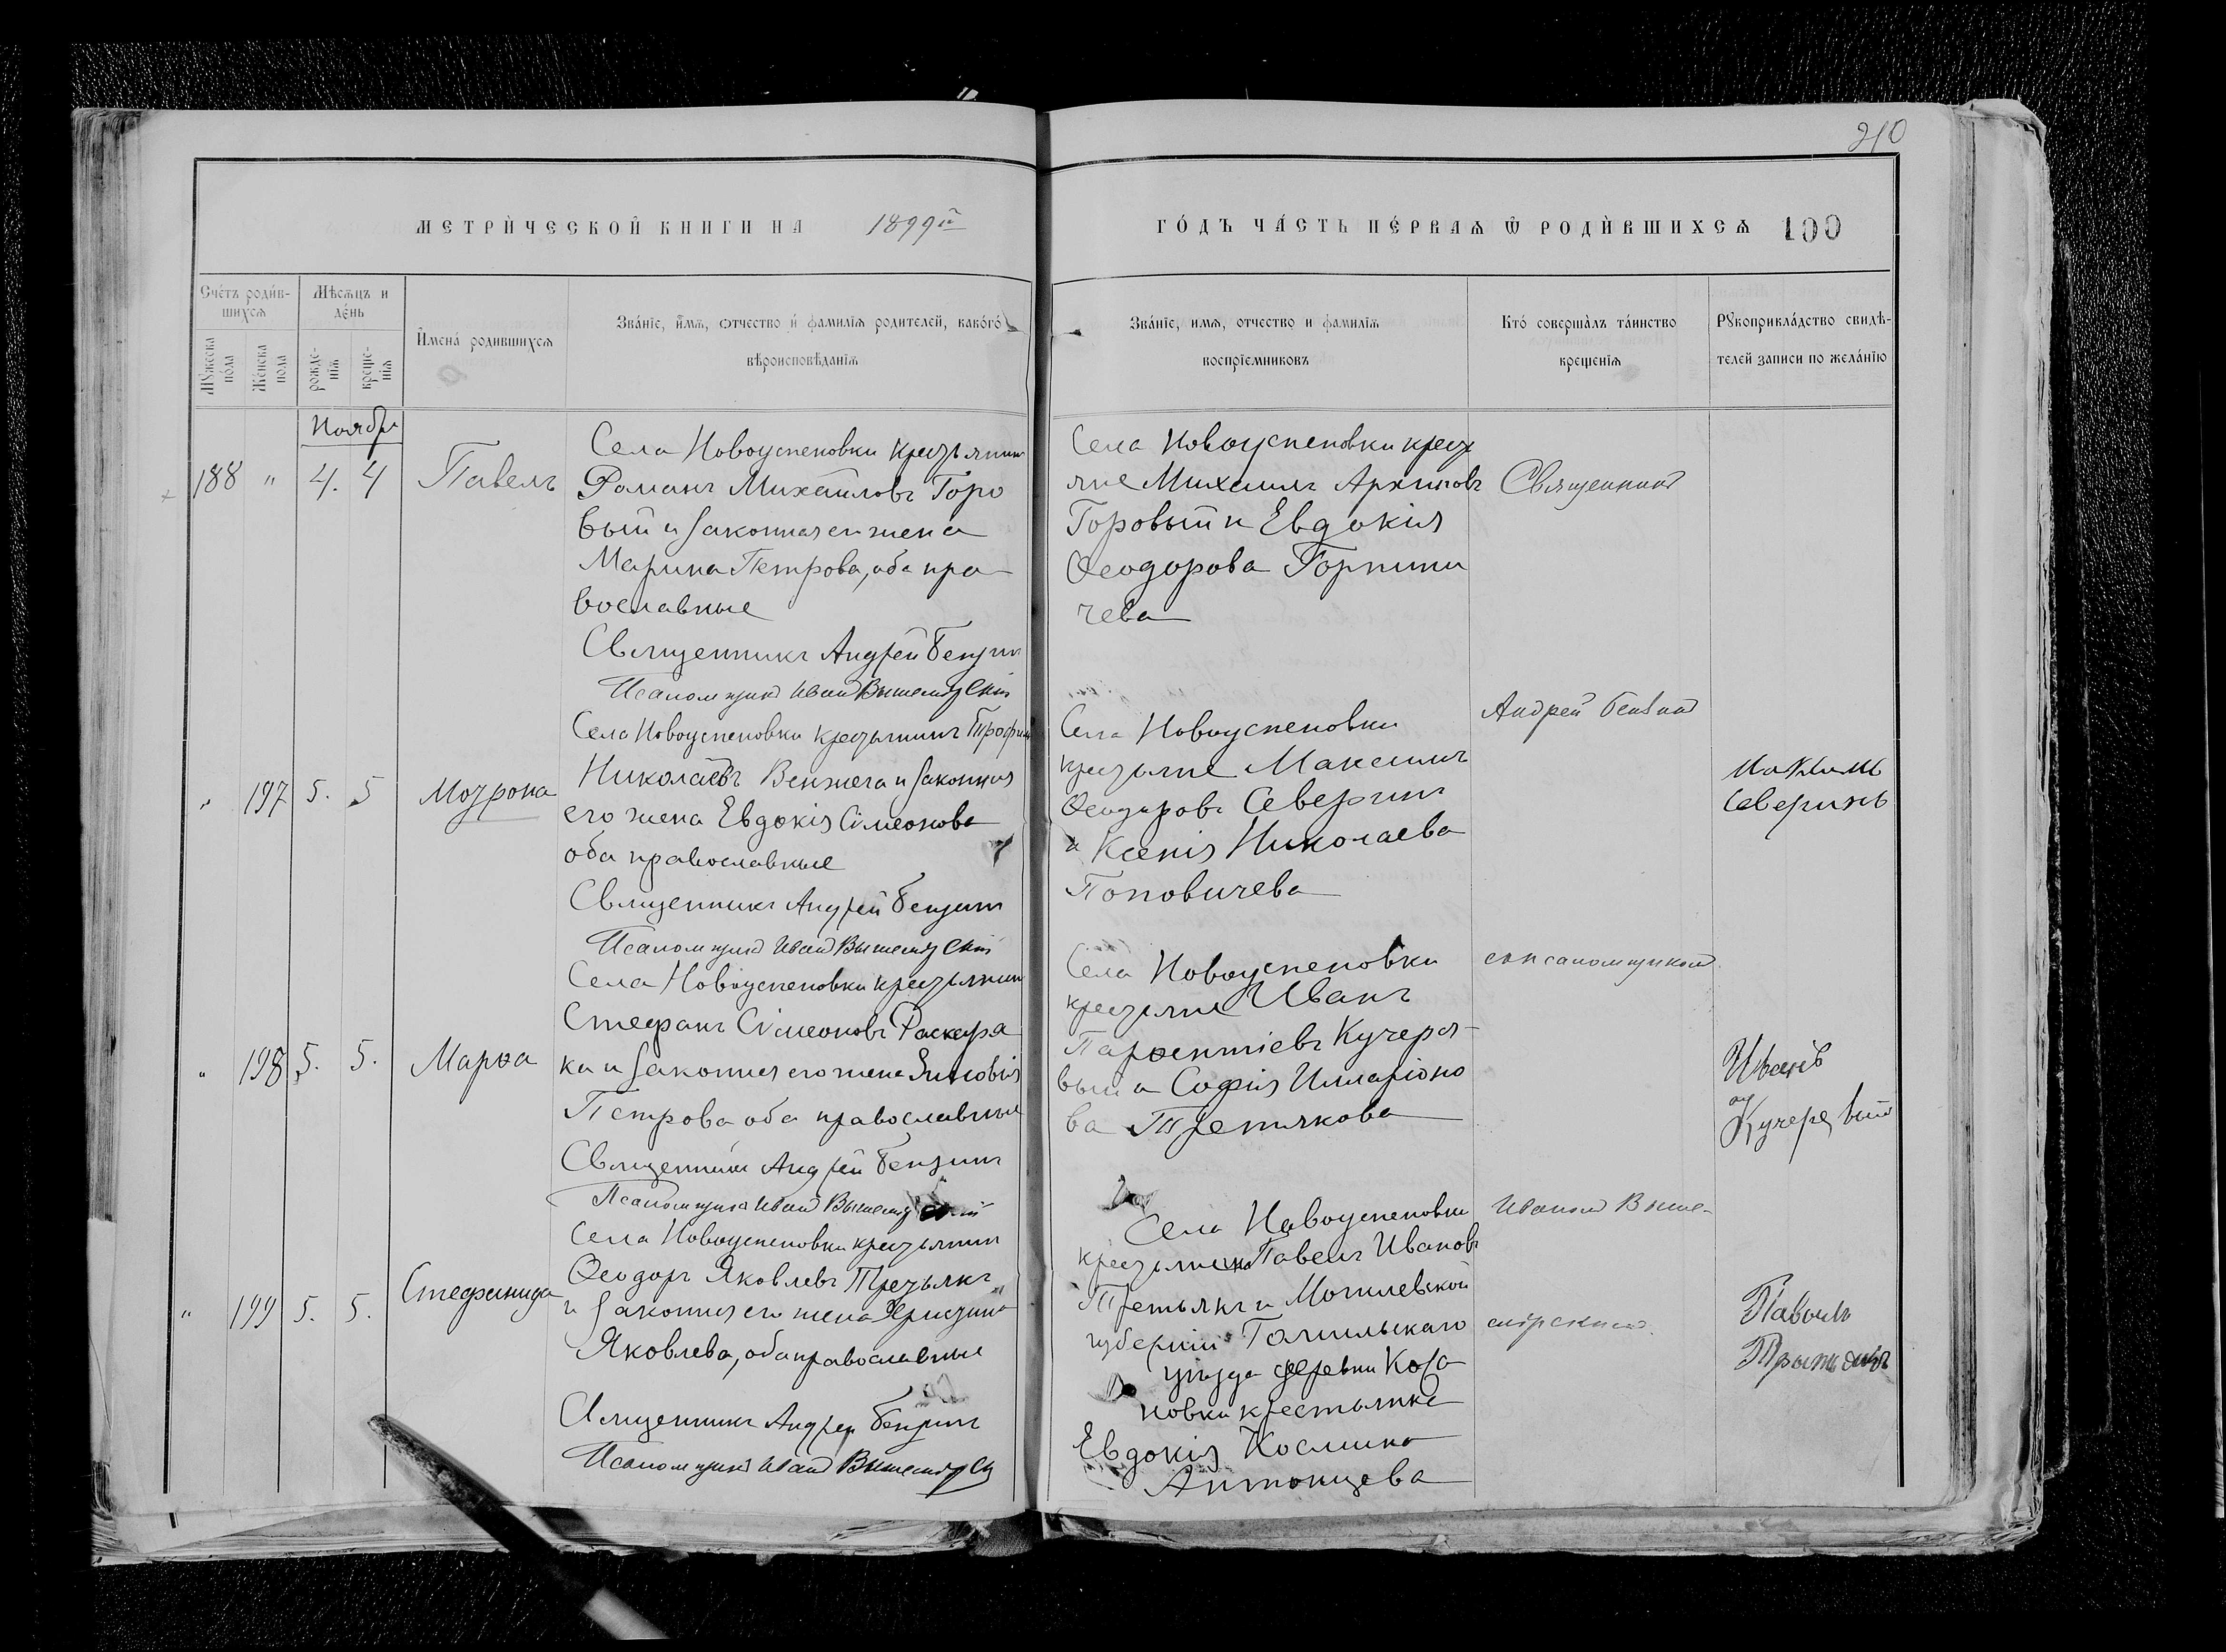 210
МЕТРИ́ЧЕСКОЙ КНИГИ НА 1899й
ГО́ДЪ ЧА́СТЬ ПЕ́РВАѦ Ѿ РОДИ́ВШИХСѦ 100
Сче́тъ роди́в-
шихсѧ
Мѣсѧцъ и
де́нь
Мꙋжеска
по́ла
Же́нска
пола
рожде-
нїѧ
креще-
нїѧ
И҆мена́ родившихсѧ
Зва́нїе, и҆́мѧ, ѻтчество и҆ фамилїѧ родителей, како́гѡ
вѣроисповѣданїѧ
Зва́нїе, имѧ, отчество и фамилїѧ
воспрїемниковъ
Кто́ соверша́лъ та́инство
крещенїѧ
Рꙋкоприкла́дство свидѣ-
телей записи по жела́нїю
Ноябрь
188 " 4. 4 Павелъ
Села Новоуспеновки крестьянин
Романъ Михайловъ Горо
вый и законная его жена
Марина Петрова, оба пра
вославные
Священникъ Андрей Бензин
Псаломщикъ Иван
Села Новоуспеновки кресть
яне Михаилъ Архиповъ
Горовый и Евдокія
Ѳеодорова Горпини
чева
Священник
" 197 5. 5 Мотрона
Села Новоуспеновки крестьянинъ Трофим
Николаевъ Венжега и законная
его жена Евдокія Сімеонова
оба православные
Священникъ Андрей Бензин
Псаломщикъ Иван
Села Новоуспеновки
крестьяне Максимъ
Ѳеодоровъ Северин
и Ксенія Николаева
Поповичева
Андрей Бензин
Северинъ
" 198 5. 5. Марѳа
Села Новоуспеновки крестьянин
Стефанъ Сімеоновъ
ка и законная его жена Зиновія
Петрова оба православные
Священник Андрей Бензинъ
Псаломщикъ Иван
Села Новоуспеновки
крестьяне Иванъ
Парѳентіевъ Кучеря-
вый и Софія Илларіоно
ва Третьякова
с псаломщиком
Иванъ
" 199 5. 5. Стефанида
Села Новоуспеновки крестьянин
Ѳеодоръ Яковлевъ Третьякъ
и законная его жена Христина
Яковлева, оба православные
Священникъ Андрей Бензинъ
Псаломщикъ Иван
Села Новоуспеновки
Павелъ Ивановъ
Третьякъ и Могилевской
губерніи Гомильскаго
уѣзда деревни Коза
новки крестьянка
Евдокія Космина
Антонцева
Иваном Выше-